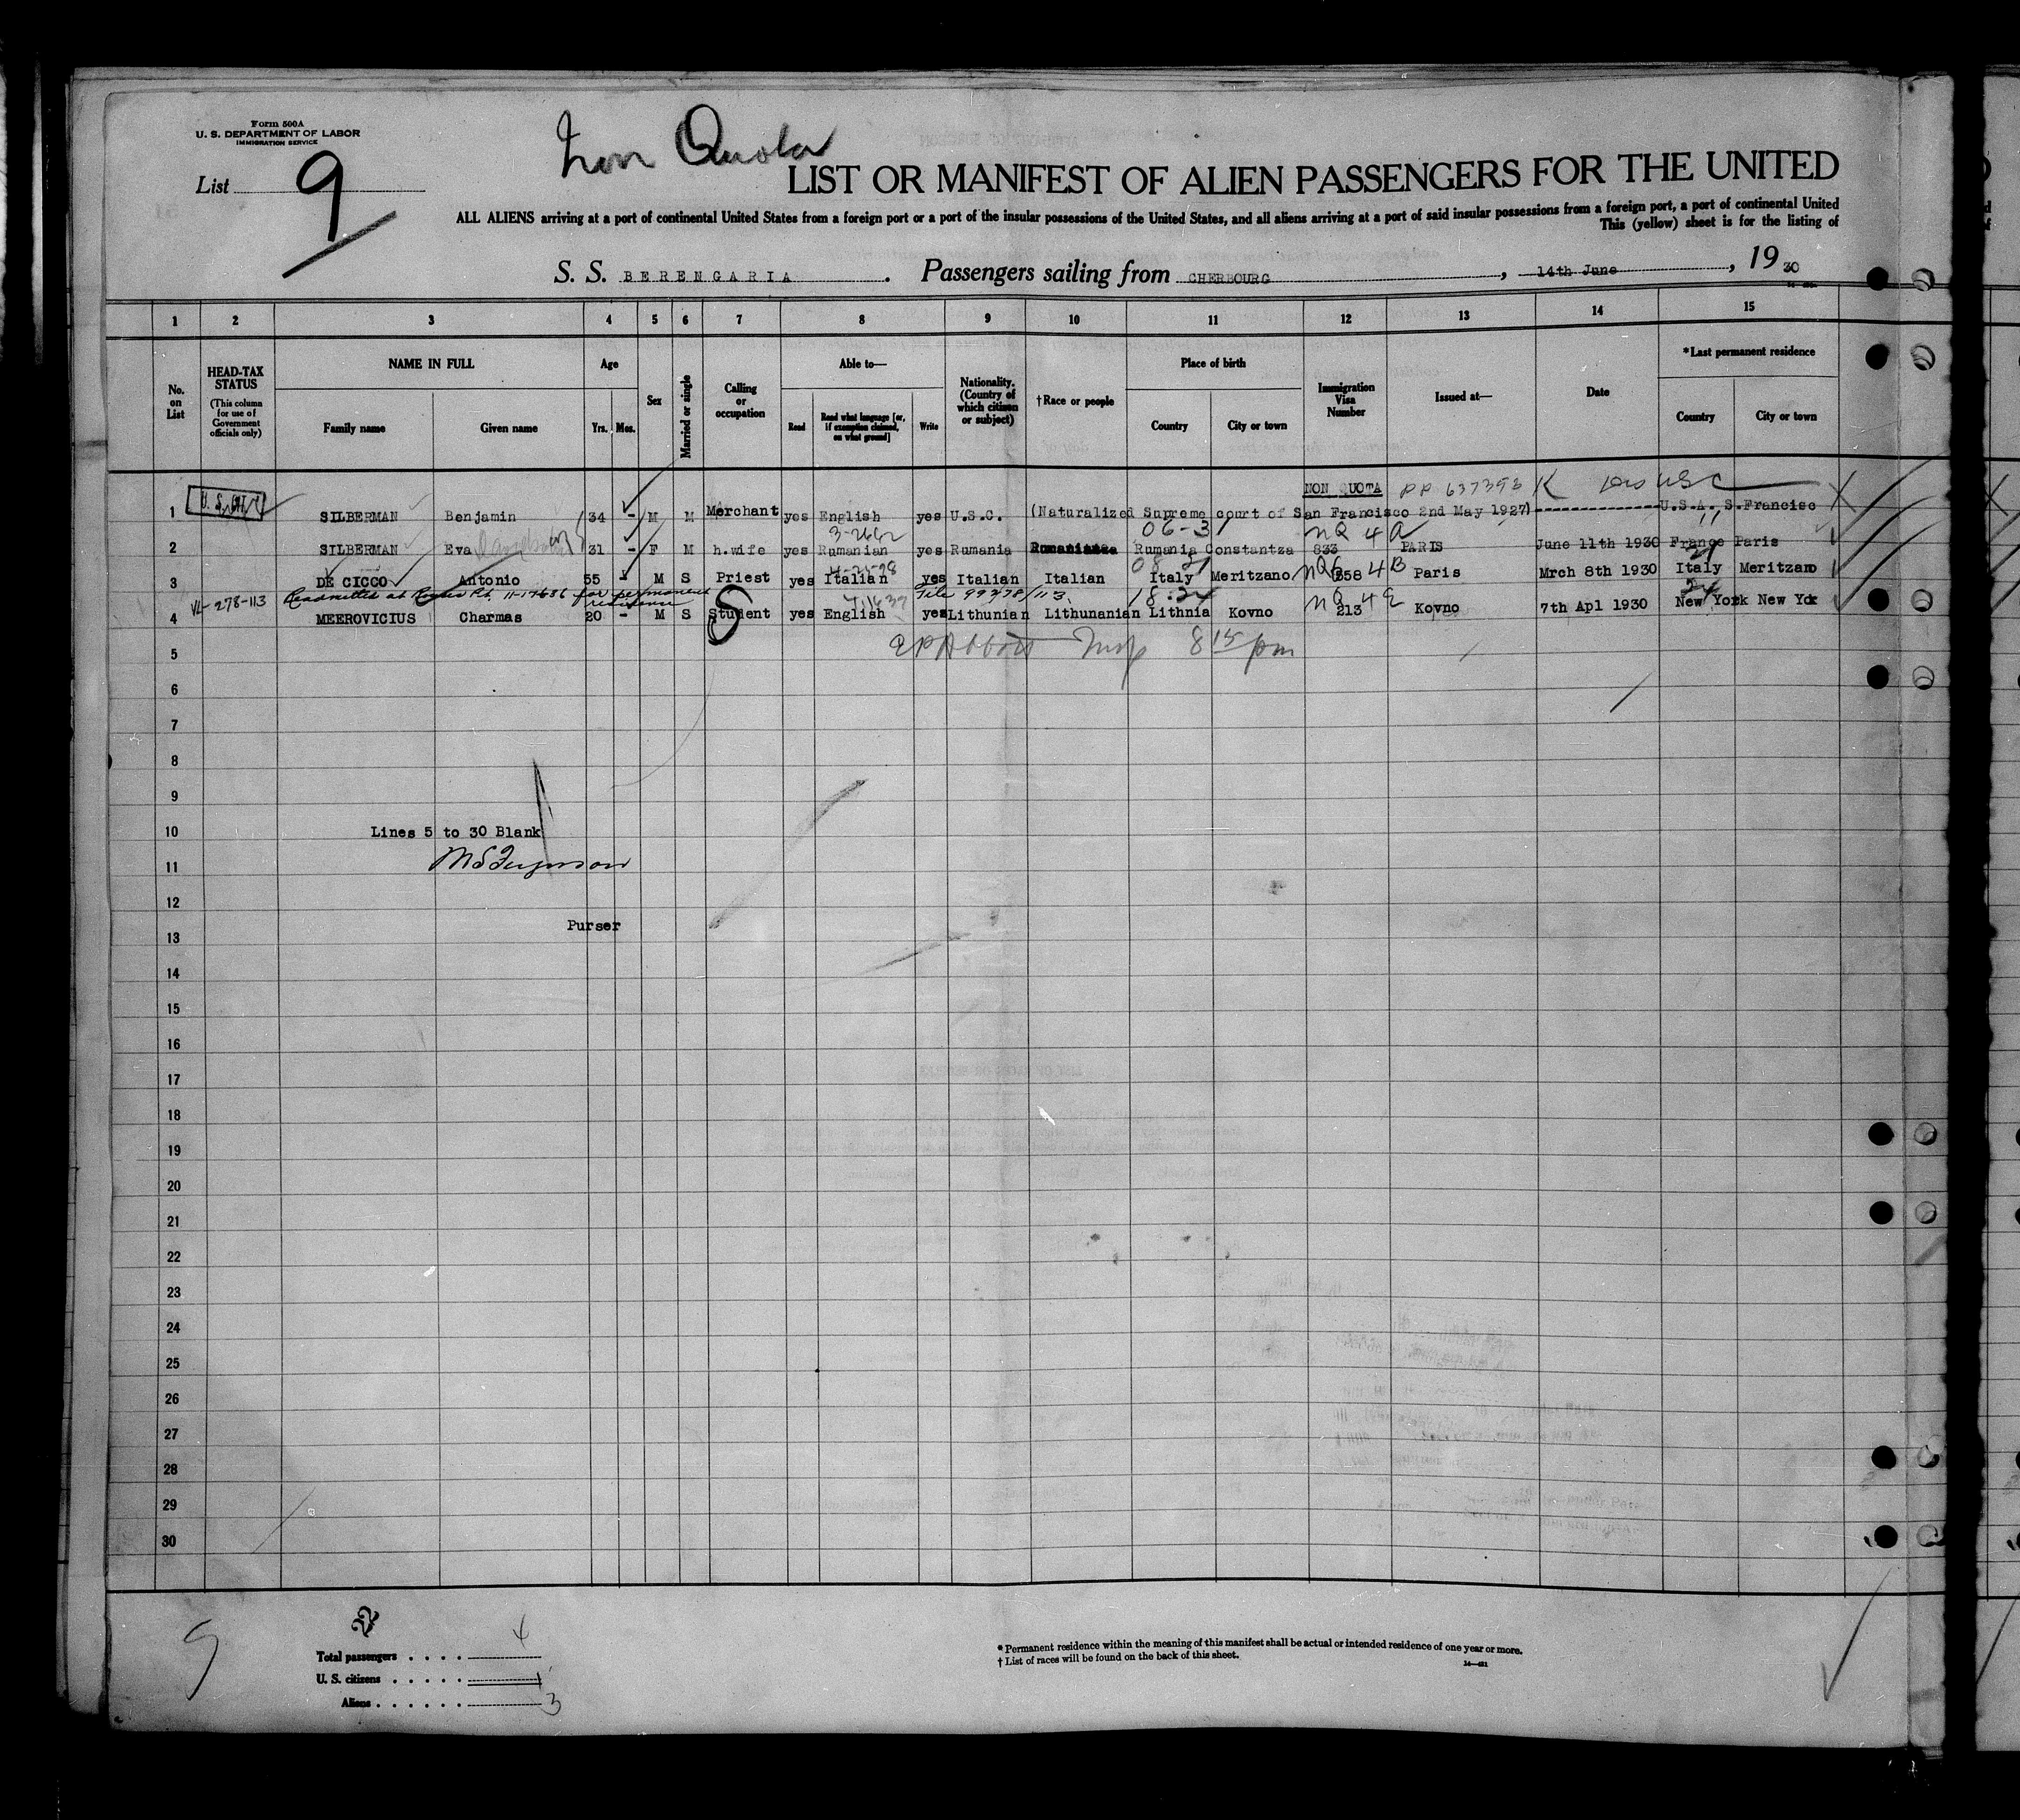 Form 500A
U. S. DEPARTMENT OF LABOR
IMMIGRATION SERVICE
List 9
Non Quota
LIST OR MANIFEST OF ALIEN PASSENGERS FOR THE UNITED
ALL ALIENS arriving at a port of continental United States from a foreign port or a port of the insular possessions of the United States, and all aliens arriving at a port of said insular possessions from a foreign port, a port of continental United
This (yellow) sheet is for the listing of
S. S. BERENGARIA. Passengers sailing from CHERBOURG, 14th June, 1930
1 2 3 4 5 6 7 8 9 10 11 12 13 14 15
No. on List
HEAD-TAX STATUS (This column for use of Government officials only)
NAME IN FULL
Family name Given name
Age
Yrs. Mos.
Sex
Married or single
Calling or occupation
Able to—
Read
Read what language [or, if exemption claimed, on what ground]
Write
Nationality. (Country of which citizen or subject)
†Race or people
Place of birth
Country City or town
Immigration Visa Number
Issued at—
Date
*Last permanent residence
Country City or town
NON QUOTA PP 637393
1 SILBERMAN Benjamin 34 - M M Merchant yes English yes U.S.C. (Naturalized Supreme court of San Francisco 2nd May 1927) U.S.A. S.Francisc
06-31 NQ 4a
2 SILBERMAN Eva 31 - F M h.wife yes Rumanian yes Rumania Rumania Constantza 833 PARIS June 11th 1930 France Paris
3 DE CICCO Antonio 55 - M S Priest yes Italian yes Italian Italian Italy Meritzano 258 4B Paris Mrch 8th 1930 Italy Meritzano
VL-278-113 Readmitted at for permanent residence File 99778/113.
4 MEEROVICIUS Charmas 20 - M S Student yes English yes Lithunian Lithunanian Lithnia Kovno NQ 4E 213 Kovno 7th Apl 1930 New York New Yok
5 Insp 8 15 pm
6
7
8
9
10 Lines 5 to 30 Blank
11
12
Purser
13
14
15
16
17
18
19
20
21
22
23
24
25
26
27
28
29
30
9
Total passengers . . . . 4
U. S. citizens . . . . . 1
Aliens . . . . . . 3
* Permanent residence within the meaning of this manifest shall be actual or intended residence of one year or more.
† List of races will be found on the back of this sheet.